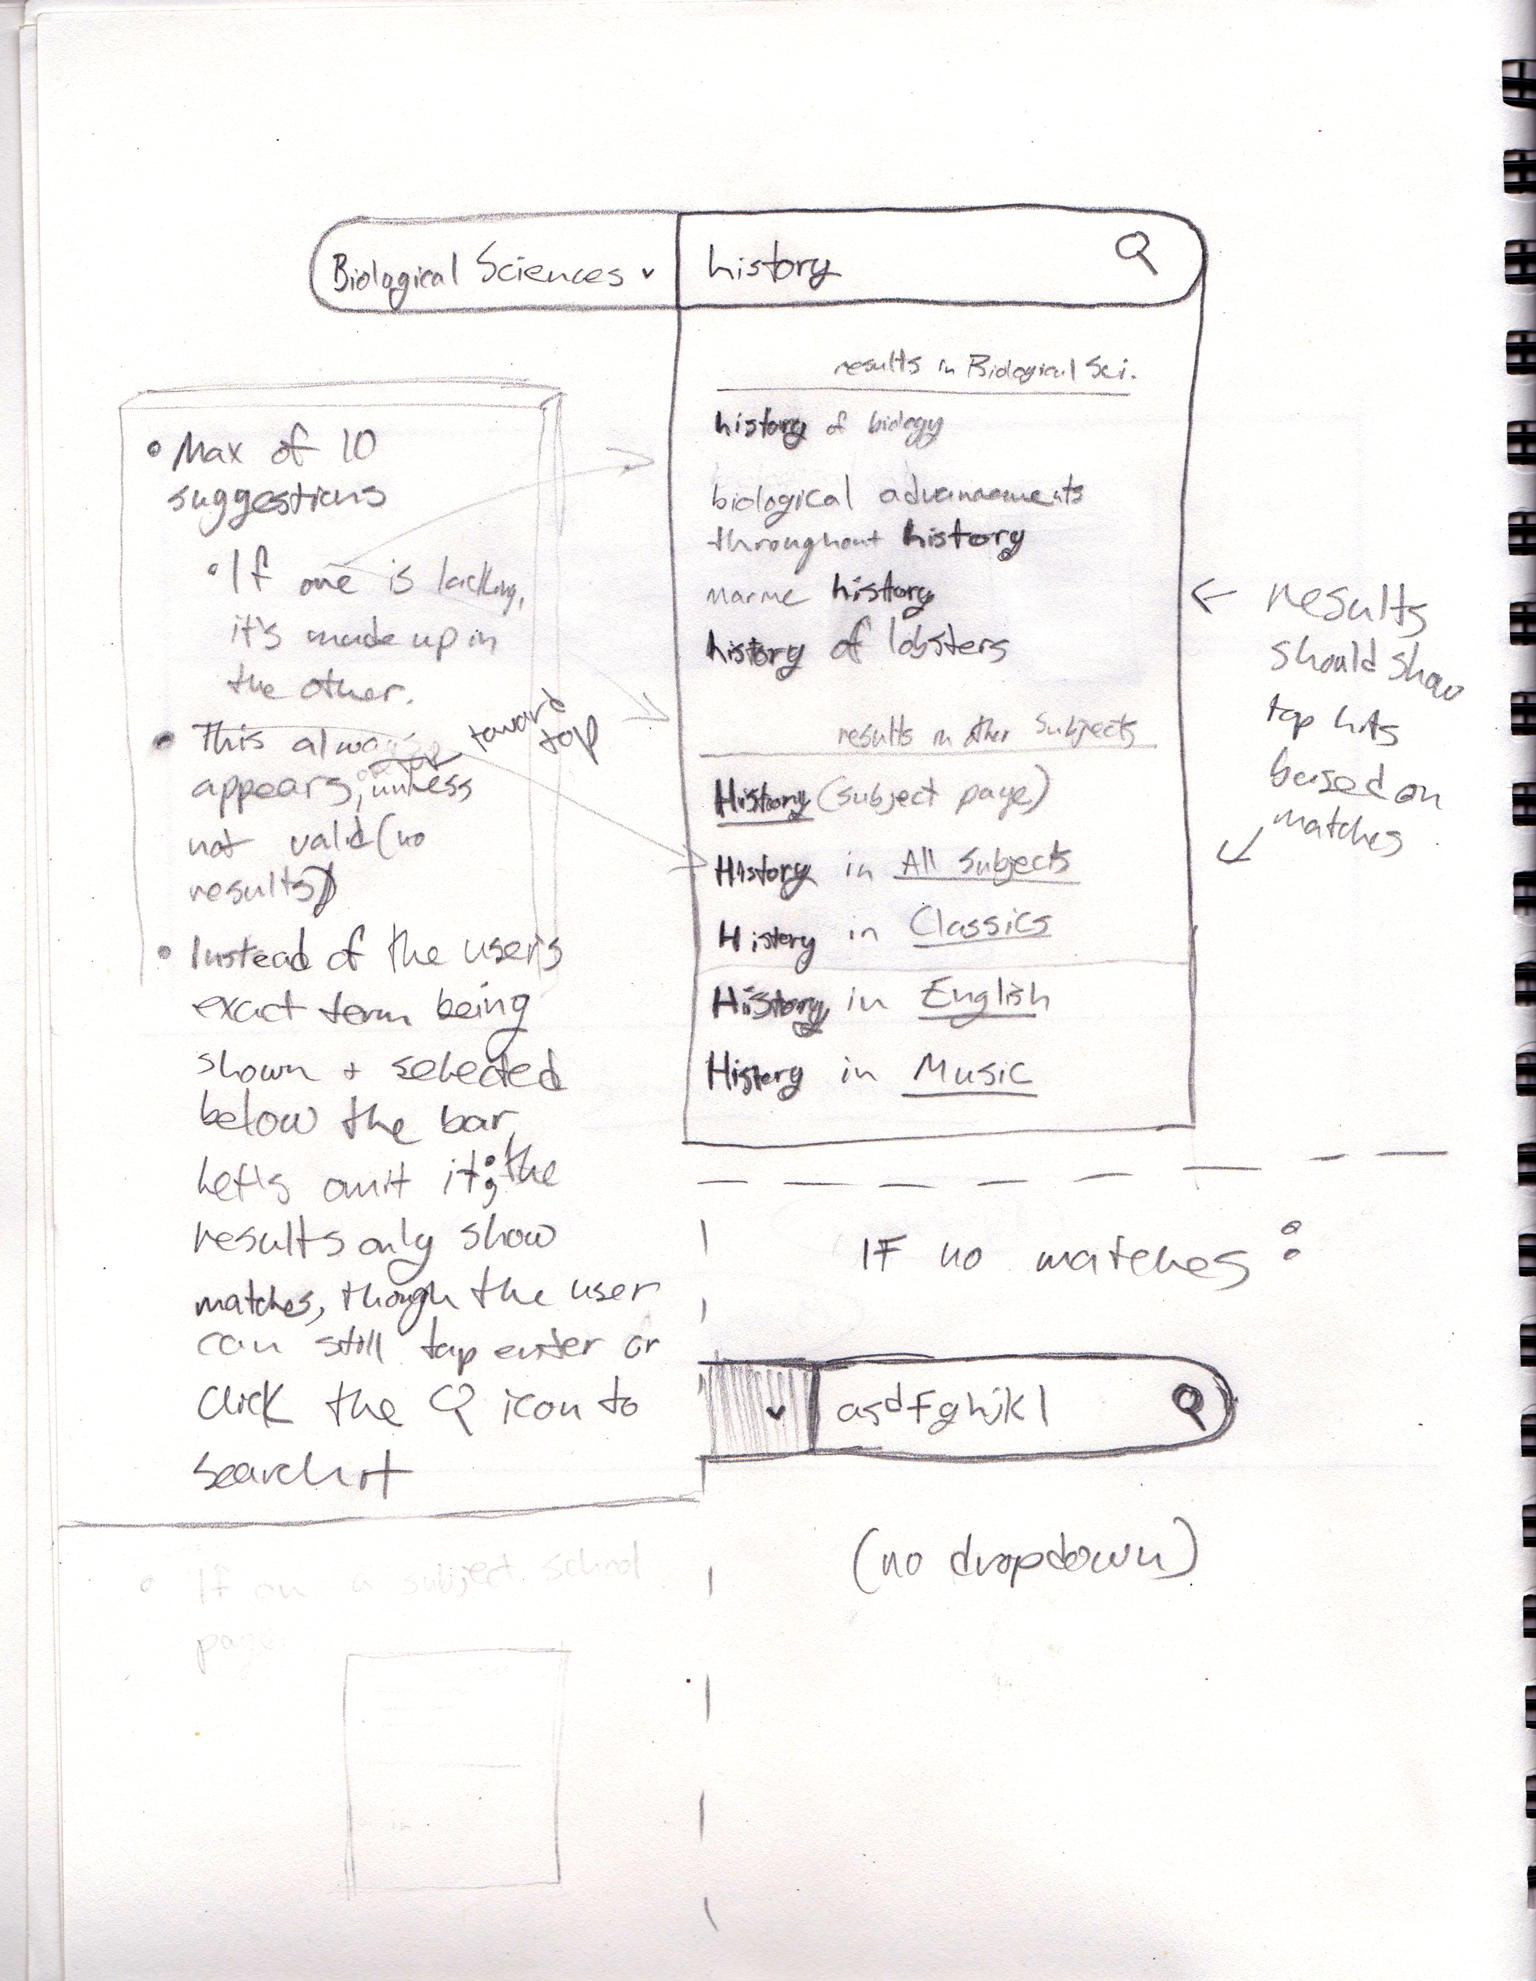 Biological Sciences
history
results in Biological Sci.
history of biology
biological advancements
throughout history
marine history
history of lobsters
results in other subjects
History (subject page)
History in All Subjects
History in Classics
History in English
History in Music
• Max of 10
suggestions
• If one is lacking,
it's made up in
the other.
• This always
toward
top
appears, unless
not valid (no
results)
• Instead of the user's
exact term being
shown + selected
below the bar,
let's omit it; the
results only show
matches, though the user
can still tap enter or
click the icon to
search it
results
should show
top hits
based on
matches
IF no matches:
asdfghjkl
(no dropdown)
• If on a subject school
page